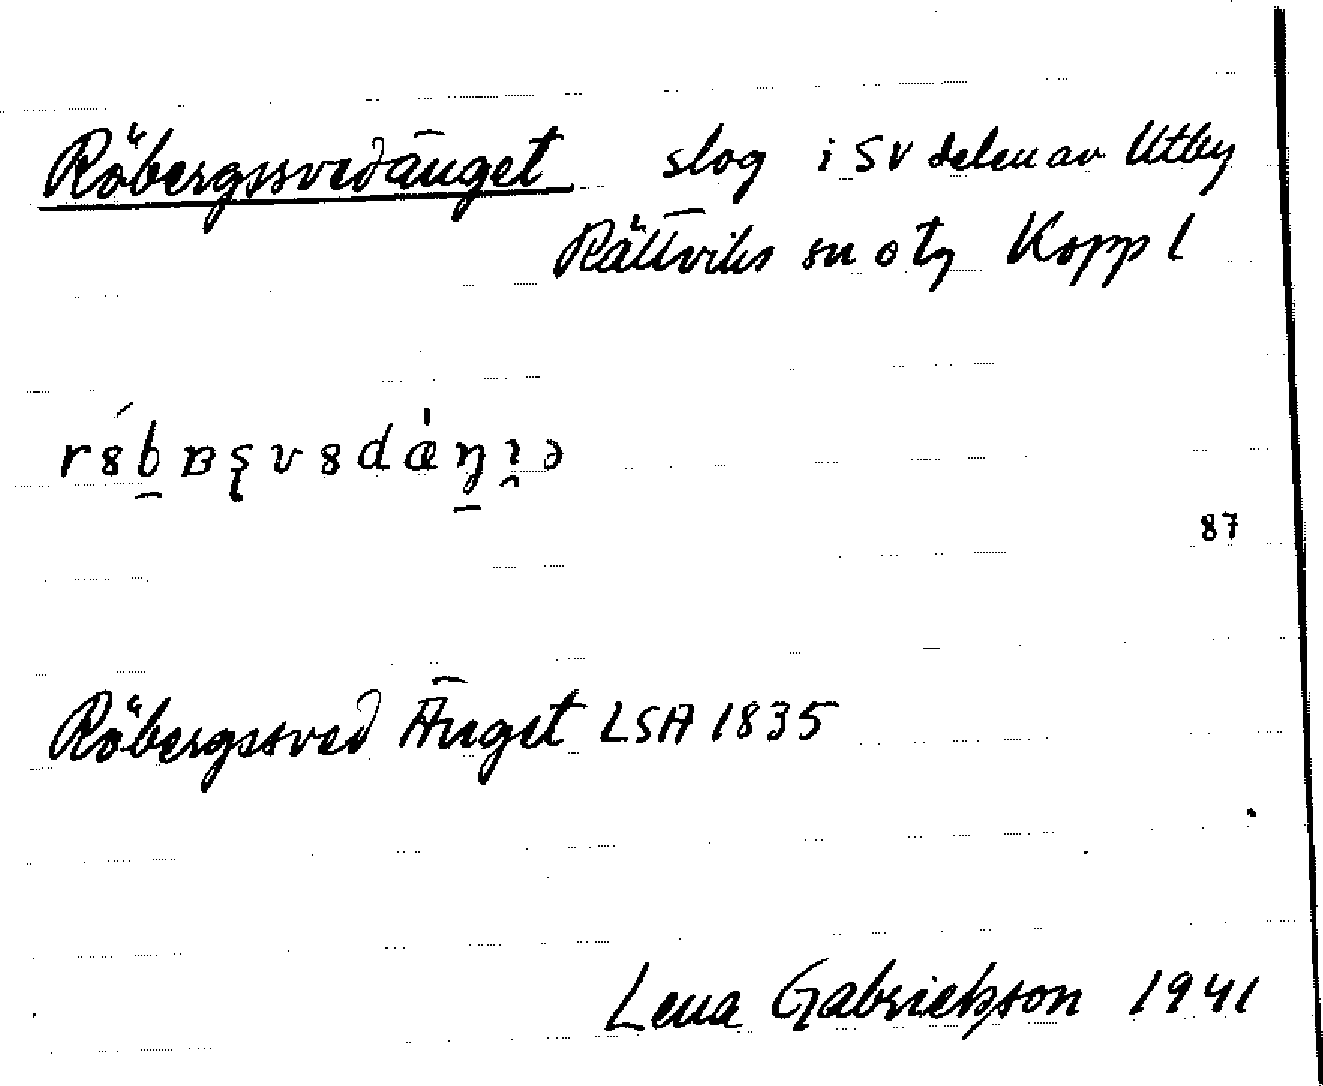 Röbergssvedänget slog i SV delen av Utby
Rättviks sn o tg Kopp l
87
Röbergssved Änget LSA 1835
Lena Gabrielsson 1941